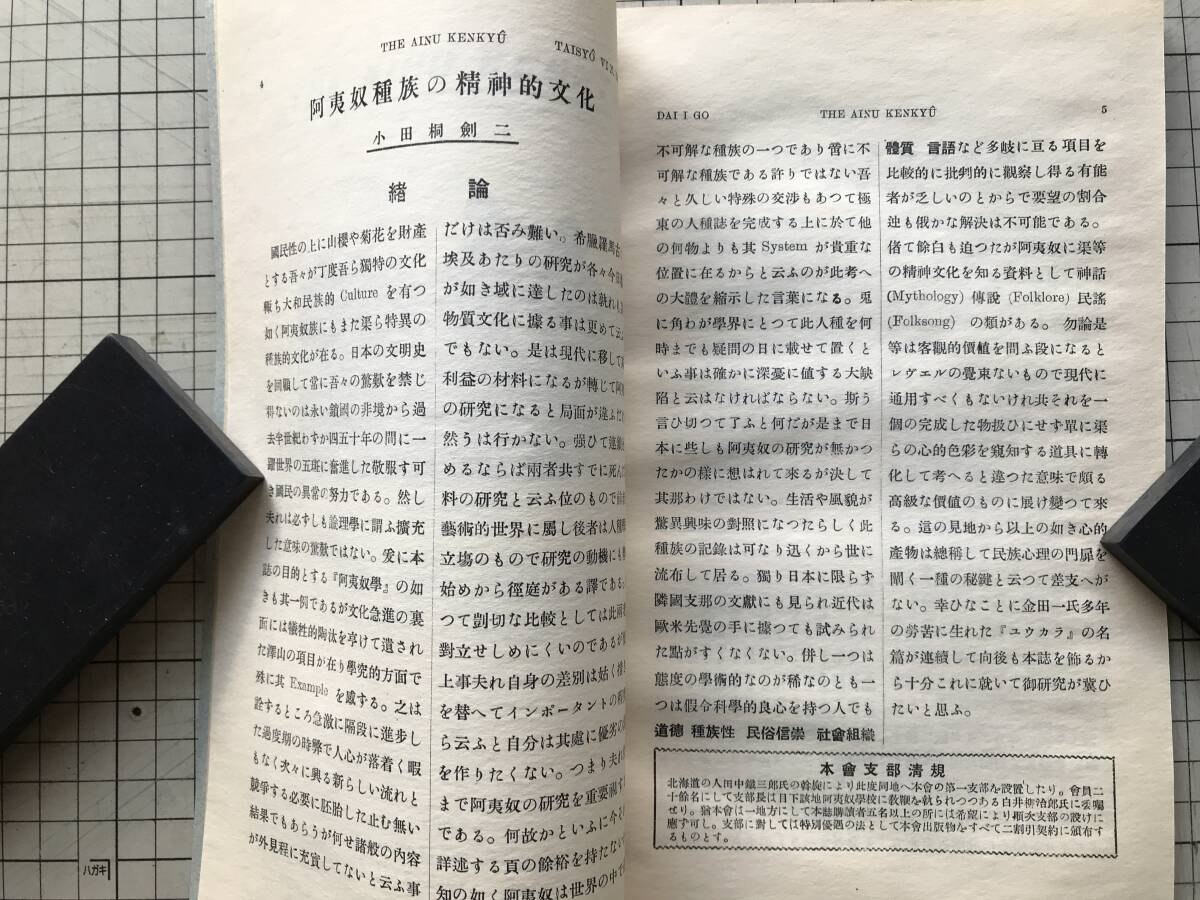 4
THE AINU KENKYÛ
TAISYÔ VI
阿夷奴種族の精神的文化
小田桐劍二
緒論
國民性の上に山櫻や菊花を財產
とする吾々が丁度吾ら獨特の文化
輙ち大和民族的 Culture を有つ
如く阿夷奴族にもまた渠ら特異の
種族的文化が在る。日本の文明史
を回顧して常に吾々の驚歎を禁じ
得ないのは永い鎖國の非境から過
去半世紀わずか四五十年の間に一
躍世界の五班に奮進した敬服す可
き國民の異常の努力である。然し
夫れは必ずしも論理學に謂ふ擴充
した意味の驚歎ではない。爰に本
誌の目的とする『阿夷奴學』の如
きも其一例であるが文化急進の裏
面には犠牲的陶汰を享けて遺され
た澤山の項目が在り學究的方面で
殊に其 Example を感する。之は
詮するところ急激に隔段に進步し
た過度期の時弊で人心が落着く暇
もなく次々に興る新らしい流れと
競爭する必要に胚胎した止む無い
結果でもあらうが何せ諸般の內容
が外見程に充實してないと云ふ事
だけは否み難い。希臘羅馬古
埃及あたりの研究が各々今日
が如き域に達したのは孰れも
物質文化に據る事は更めて云
でもない。是は現代に移して
利益の材料になるが轉じて阿
の研究になると局面が違ふだ
然うは行かない。强ひて進
めるならば兩者共すでに死んだ
料の研究と云ふ位のもので前
藝術的世界に屬し後者は人類
立塲のもので研究の動機にも
始めから徑庭がある譯である
つて剴切な比較としては此兩
對立せしめにくいのであるが
上事夫れ自身の差別は姑く措
を替へてインポータントの
ら云ふと自分は其處に優劣の
を作りたくない。つまり夫れ
まで阿夷奴の研究を重要視す
である。何故かといふに今
詳述する頁の餘裕を持たない
知の如く阿夷奴は世界の中で
DAI I GO
THE AINU KENKYÛ
5
不可解な種族の一つであり啻に不
可解な種族である許りではない吾
々と久しい特殊の交渉もあつて極
東の人種誌を完成する上に於て他
の何物よりも其 System が貴重な
位置に在るからと云ふのが此考へ
の大體を縮示した言葉になる。兎
に角わが學界にとつて此人種を何
時までも疑問の日に載せて置くと
いふ事は確かに深憂に値する大缺
陷と云はなければならない。斯う
言ひ切つて了ふと何だが是まで日
本に些しも阿夷奴の研究が無かつ
たかの樣に想はれて來るが決して
其那わけではない。生活や風貌が
驚異興味の對照になつたらしく此
種族の記錄は可なり迅くから世に
流布して居る。獨り日本に限らず
隣國支那の文獻にも見られ近代は
歐米先覺の手に據つても試みられ
た點がすくなくない。併し一つは
態度の學術的なのが稀なのとも一
つは假令科學的良心を持つ人でも
道德 種族性 民俗信崇 社會組織
體質 言語など多岐に亘る項目を
比較的に批判的に觀察し得る有能
者が乏しいのとからで要望の割合
迚も俄かな解決は不可能である。
偖て餘白も迫つたが阿夷奴に渠等
の精神文化を知る資料として神話
(Mythology) 傳說 (Folklore) 民謠
(Folksong) の類がある。勿論是
等は客觀的價値を問ふ段になると
レヴエルの覺束ないもので現代に
通用すべくもないけれ共それを一
個の完成した物扱ひにせず單に渠
らの心的色彩を窺知する道具に轉
化して考へると違つた意味で頗る
高級な價値のものに展け變つて來
る。這の見地から以上の如き心的
產物は總稱して民族心理の門扉を
開く一種の秘鍵と云つて差支へが
ない。幸ひなことに金田一氏多年
の勞苦に生れた『ユウカラ』の名
篇が連續して向後も本誌を飾るか
ら十分これに就いて御研究が冀ひ
たいと思ふ。
本會支部淸規
北海道の人田中鐵三郎氏の斡旋により此度同地へ本會の第一支部を設置したり。會員二
十餘名にして支部長は目下該地阿夷奴學校に敎鞭を執られつつある白井柳治郎氏に委囑
せり。猶本會は一地方にして本誌購讀者五名以上の所には希望により漸次支部の設けに
應ず可し。支部に對しては特別優遇の法として本會出版物をすべて二割引契約に頒布す
るものとす。
ハガキ